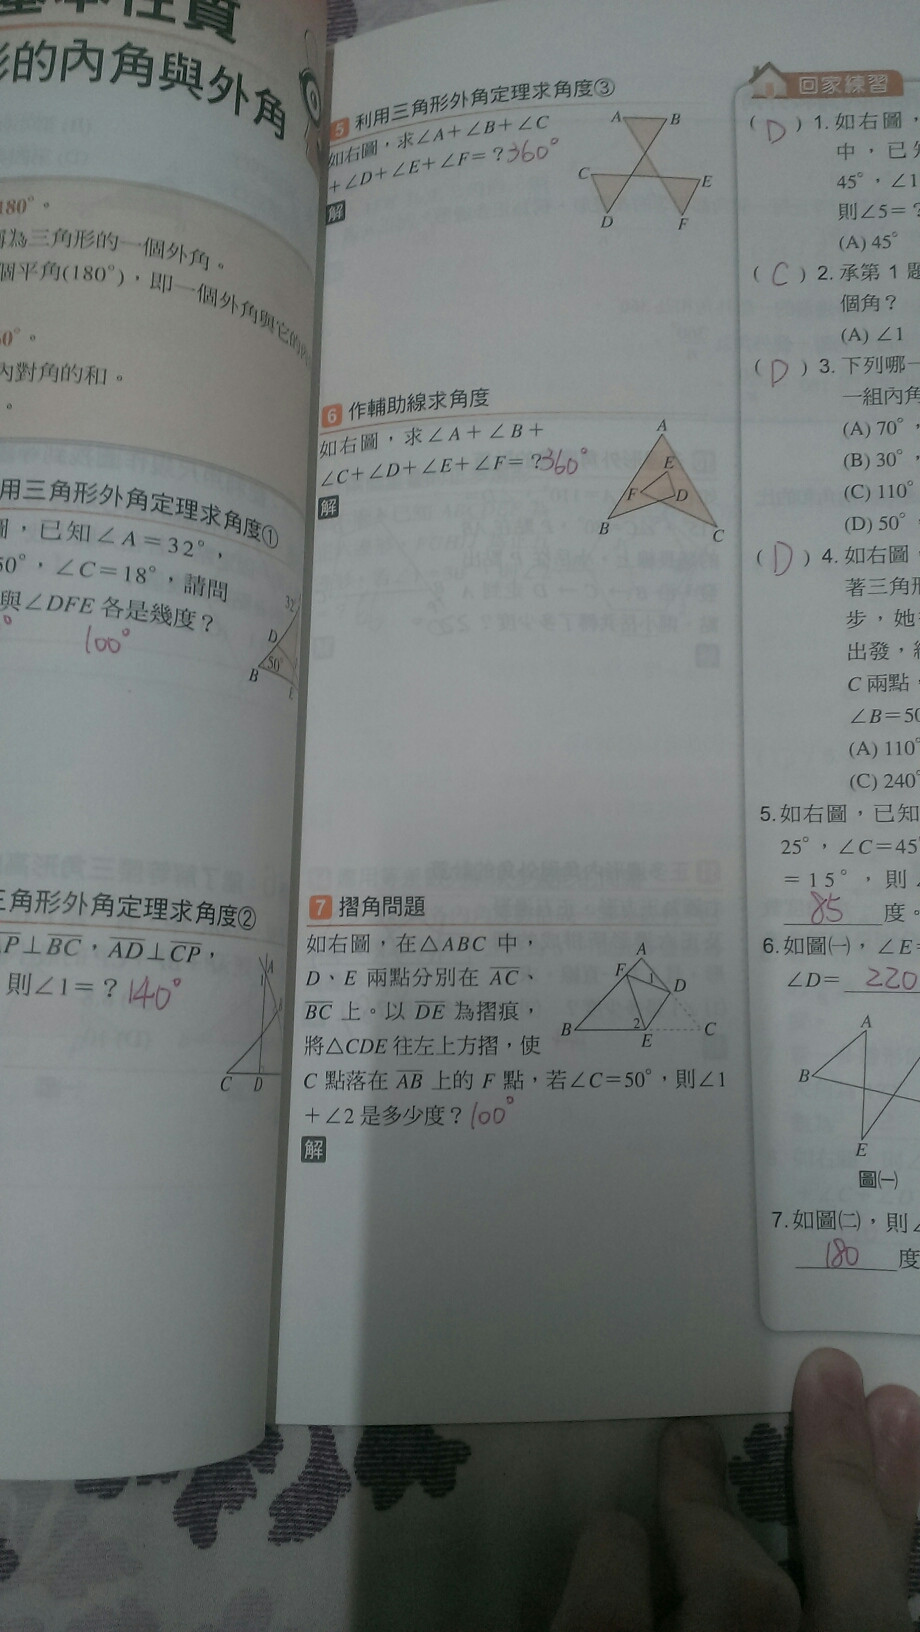 基本性質
形的內角與外角
180°。
稱為三角形的一個外角。
個平角(180°)，即一個外角與它的內
60°。
內對角的和。
用三角形外角定理求角度①
圖，已知∠A＝32°，
50°，∠C＝18°，請問
與∠DFE 各是幾度？
100°
32
D
50°
B
E
三角形外角定理求角度②
AP⊥BC，AD⊥CP，
則∠1＝？140°
A
1
C D
5 利用三角形外角定理求角度③
如右圖，求∠A＋∠B＋∠C
＋∠D＋∠E＋∠F＝？360°
解
A B
C E
D F
6 作輔助線求角度
如右圖，求∠A＋∠B＋
∠C＋∠D＋∠E＋∠F＝？360°
解
A
E
F D
B C
7 摺角問題
如右圖，在△ABC 中，
D、E 兩點分別在 AC、
BC 上。以 DE 為摺痕，
將△CDE 往左上方摺，使
C 點落在 AB 上的 F 點，若∠C＝50°，則∠1
＋∠2 是多少度？100°
解
A
F 1 D
B 2 E C
回家練習
( D ) 1. 如右圖，
中，已知
45°，∠1
則∠5＝？
(A) 45°
( C ) 2. 承第 1 題
個角？
(A) ∠1
( D ) 3. 下列哪一
一組內角
(A) 70°，
(B) 30°，
(C) 110°
(D) 50°
( D ) 4. 如右圖，
著三角形
步，她
出發，經
C 兩點，
∠B＝50
(A) 110°
(C) 240°
5. 如右圖，已知
25°，∠C＝45°
＝15°，則∠
85 度。
6. 如圖㈠，∠E＝
∠D＝ 220
A
B
E
圖㈠
7. 如圖㈡，則∠
180 度